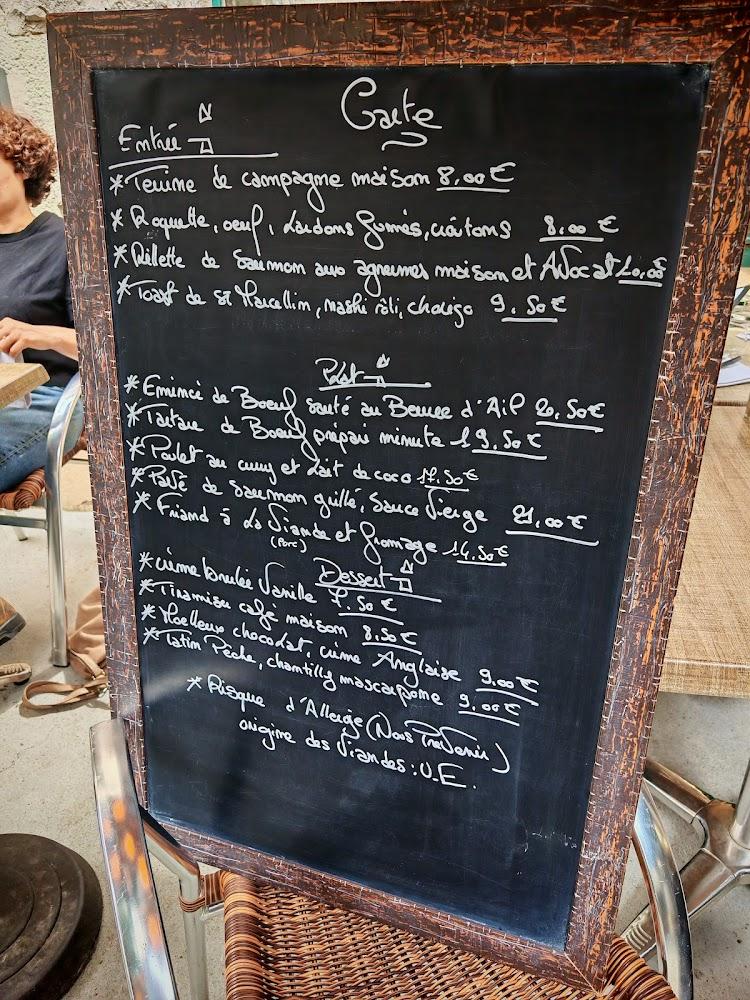 Carte
Entrée
* Terrine de campagne maison 8,00 €
* Roquette, oeuf, Lardons fumés, croûtons 8,00 €
* Rillette de Saumon aux agrumes maison et Avocat 10,00€
* Toast de st Marcellin, mashi rôti, chorizo 9,50€
Plat
* Emincé de Boeuf sauté au Beurre d'Ail 20,50€
* Tartare de Boeuf préparé minute 19,50€
* Poulet au curry et Lait de coco 17,50€
* Pavé de Saumon grillé, Sauce Vierge 21,00€
* Friand à La Viande et fromage 14,50€
(Porc)
Dessert
* crème brulée Vanille 7,50€
* Tiramisu café maison 8,50€
* Moelleux chocolat, crème Anglaise 9,00€
* Tatin Pêche, chantilly mascarpone 9,00€
* Risque d'Allergie (Nous Prévenir)
origine des Viandes : U.E.